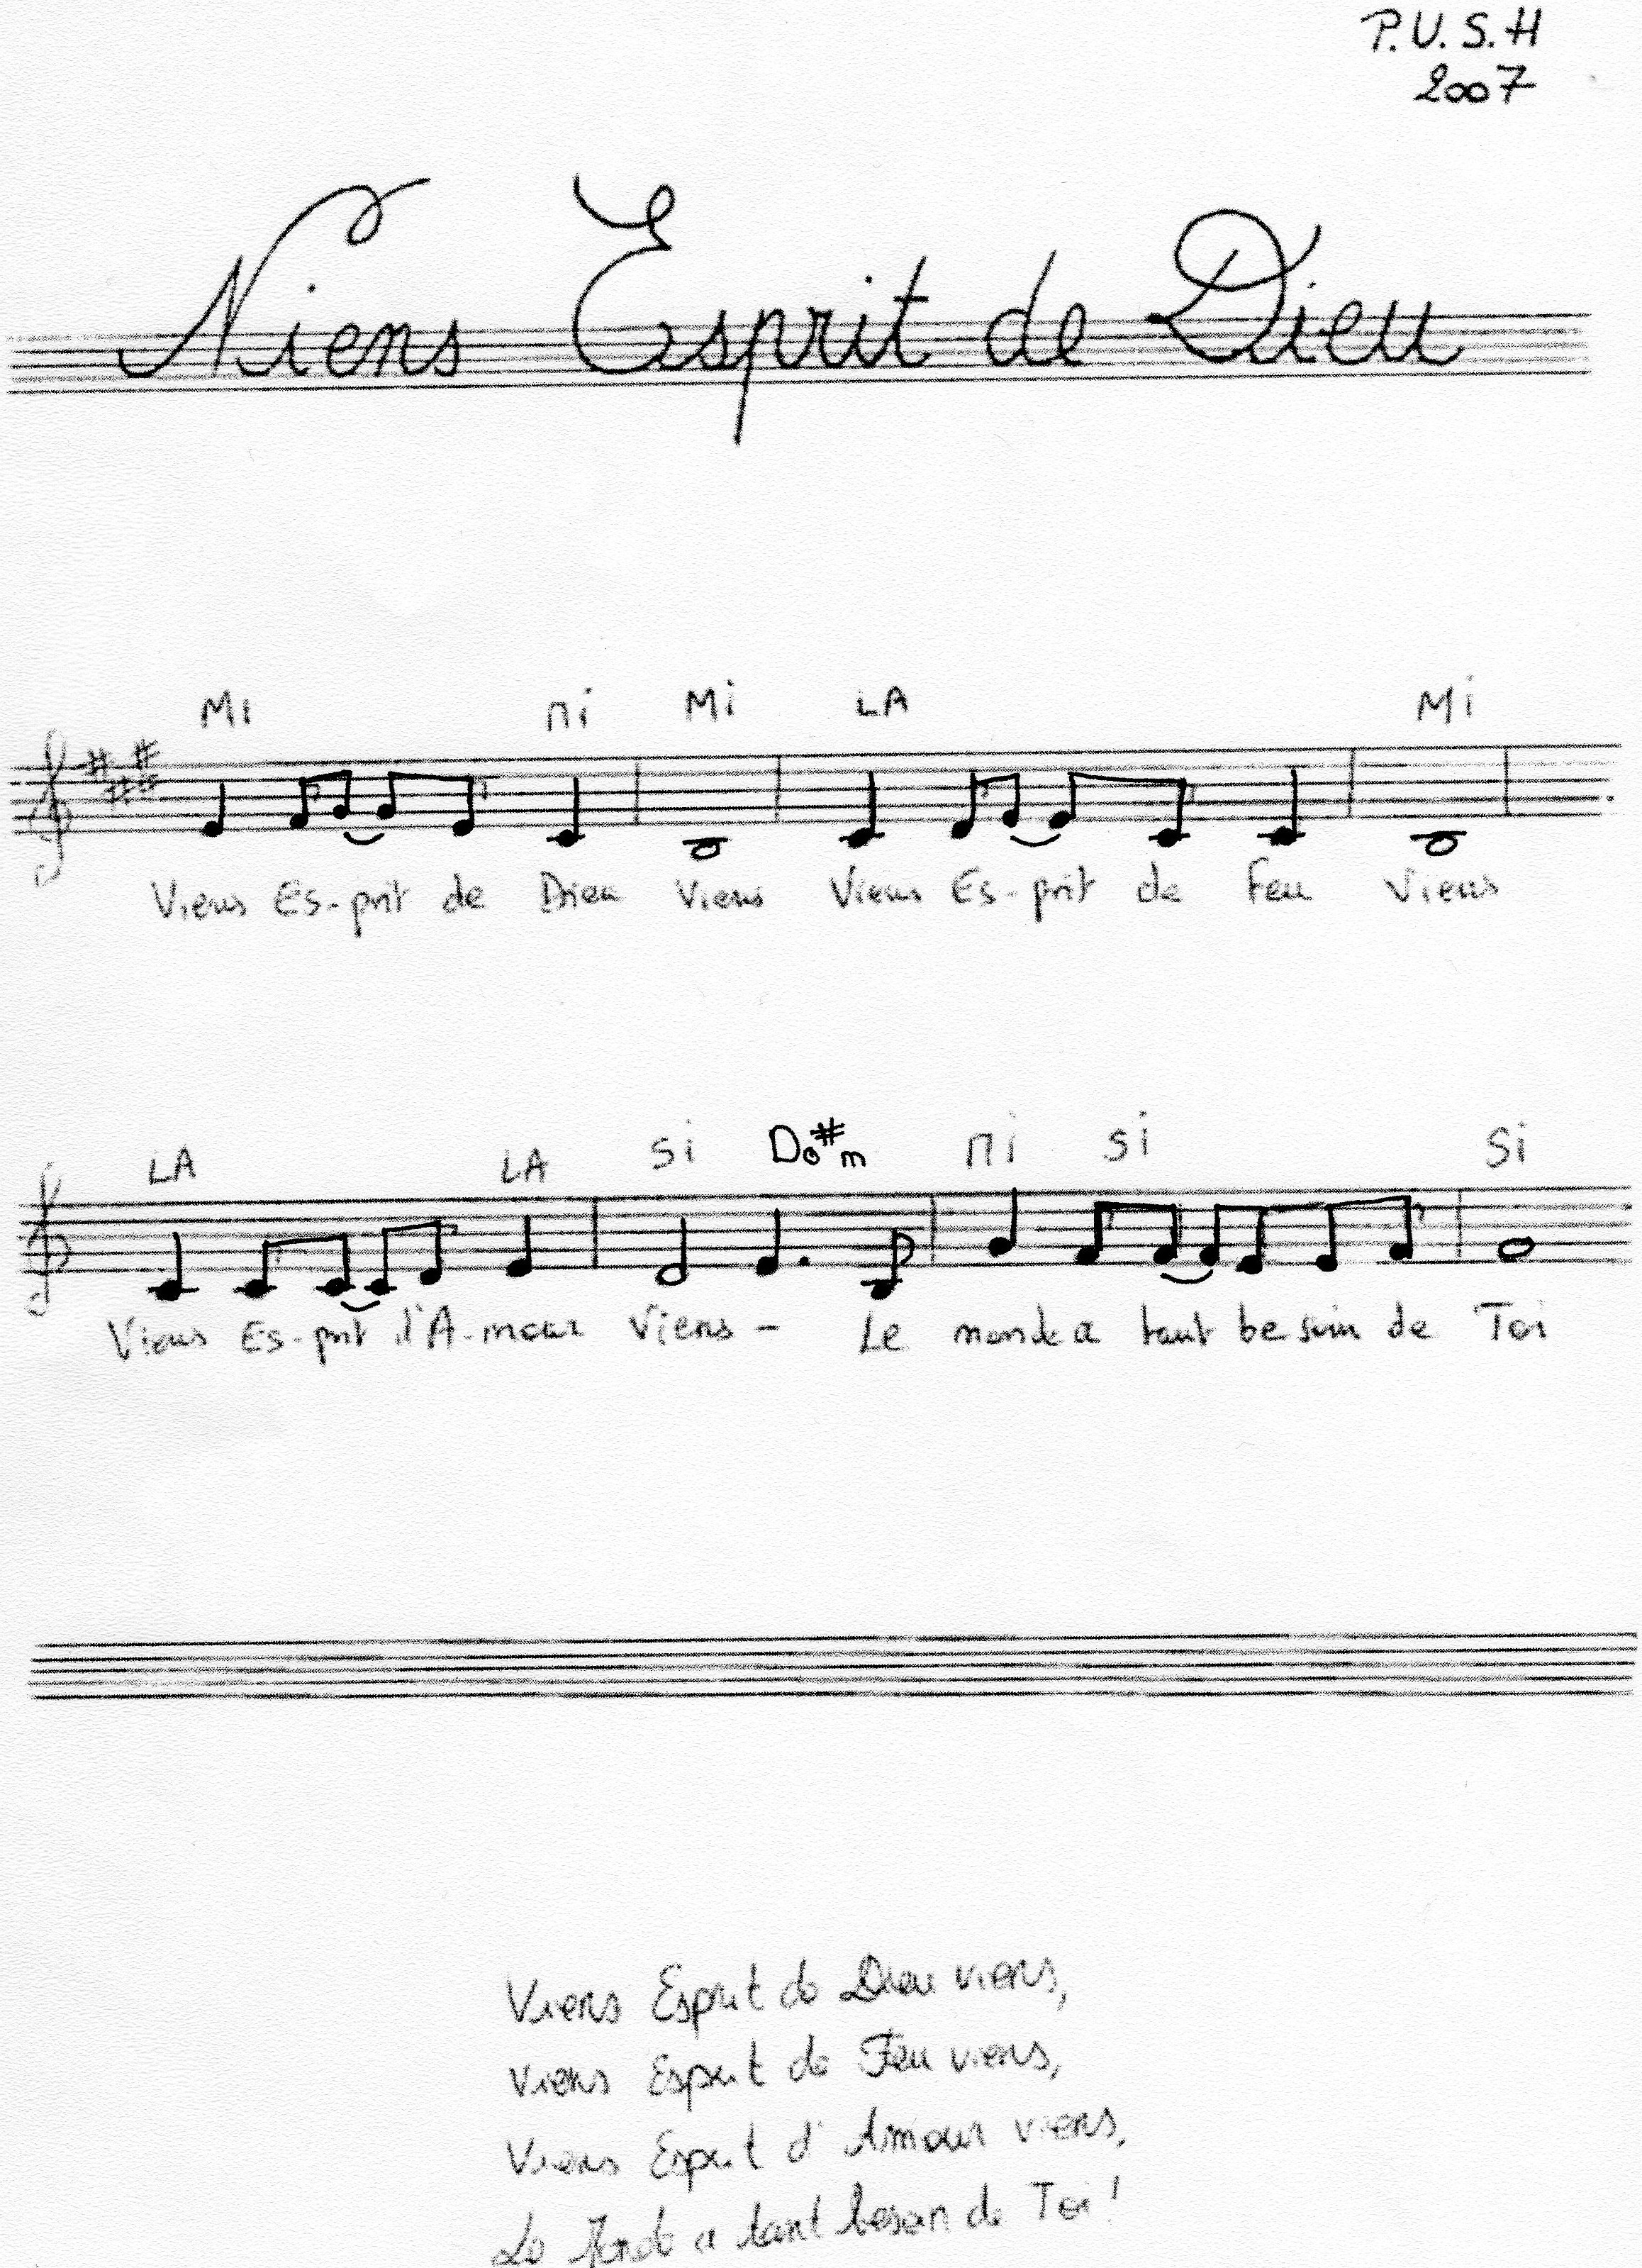 P.U.S.H
2007
Viens Esprit de Dieu
Mi Mi Mi LA Mi
Viens Es-prit de Dieu Viens Viens Es-prit de Feu Viens
LA LA Si Do#m Mi Si Si
Viens Es-prit d'A-mour Viens - Le monde a tant be soin de Toi
Viens Esprit de Dieu viens,
Viens Esprit de Feu viens,
Viens Esprit d'Amour viens,
Le Monde a tant besoin de Toi !